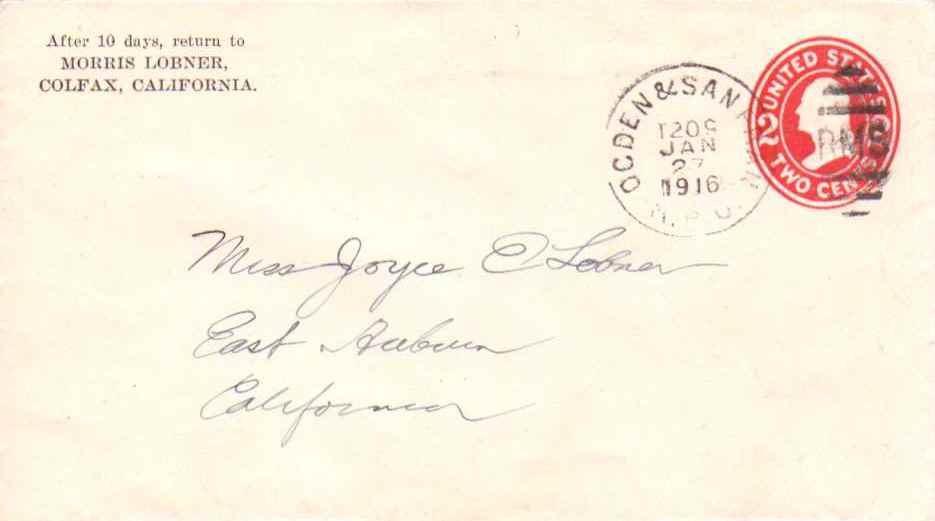 After 10 days, return to
MORRIS LOBNER,
COLFAX, CALIFORNIA.
OGDEN & SAN
JAN
27
1916
R.P.O.
UNITED STATES
2
TWO CENTS
RMS
Miss Joyce E Lobner
East Auburn
California